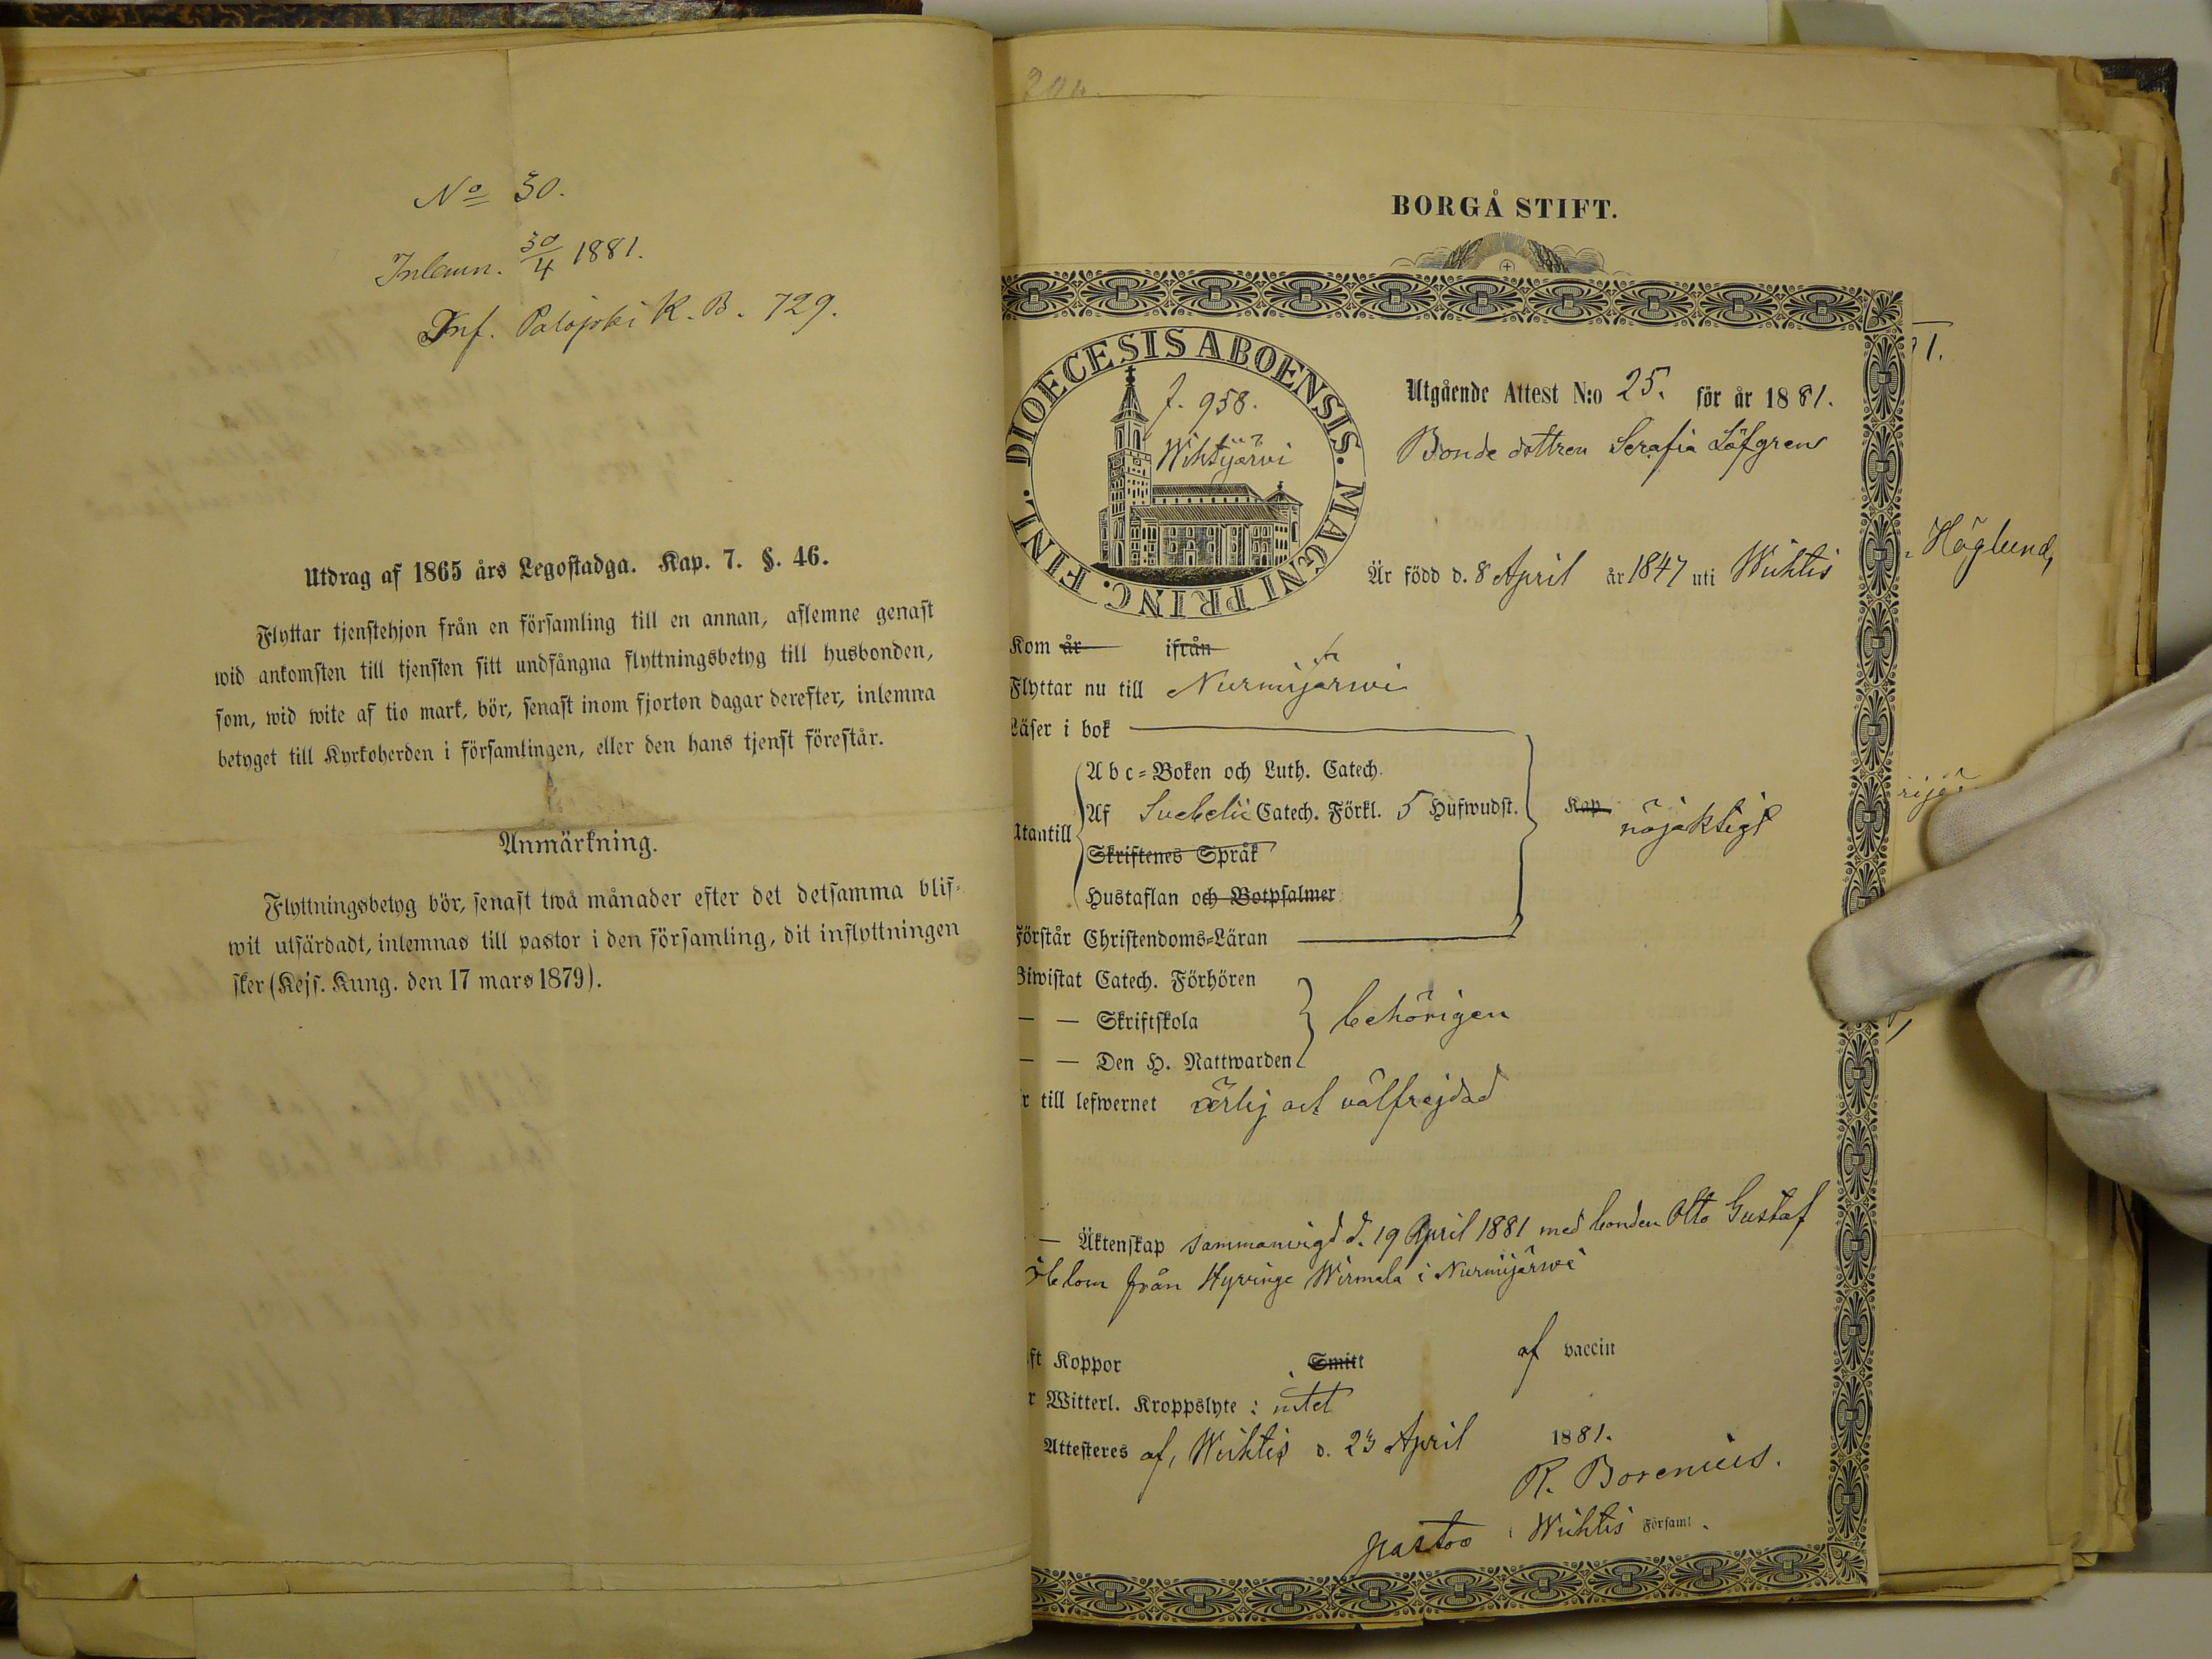 No 30.
Inlemn. 30/4 1881.
Inf. Palojoki K. B. 729.
Utdrag af 1865 års Legostadga. Kap. 7. §. 46.
Flyttar tjenstehjon från en församling till en annan, aflemne genast
wid ankomsten till tjensten sitt undfångna flyttningsbetyg till husbonden,
som, wid wite af tio mark, bör, senast inom fjorton dagar derefter, inlemna
betyget till Kyrkoherden i församlingen, eller den hans tjenst förestår.
Anmärkning.
Flyttningsbetyg bör, senast twå månader efter det detsamma blif-
wit utfärdadt, inlemnas till pastor i den församling, dit inflyttningen
sker (Kejs. Kung. den 17 mars 1879).
BORGÅ STIFT.
DIOECESIS ABOENSIS. MAGNI PRINC. FINL.
f. 958.
Wihtijärvi
Utgående Attest N:o 25. för år 1881.
Bonde dottren Serafia Löfgren
Är född d. 8 April år 1847 uti Wichtis
Höglund,
Kom år ifrån
Flyttar nu till Nurmijärwi
Läser i bok
Abc-Boken och Luth. Catech.
Utantill Af Svebelii Catech. Förkl. 5 Hufwudst. Kap nöjaktigt
Skriftenes Språk
Hustaflan och Botpsalmer
Förstår Christendoms-Läran
Biwistat Catech. Förhören
— — Skriftskola behörigen
— — Den H. Nattwarden
r till lefwernet ärlig och välfrejdad
— Äktenskap sammanvigd d. 19 April 1881 med bonden Otto Gustaf
från Hyvinge Wirmala i Nurmijärwi
ft Koppor Smitt af vaccin
r Witterl. Kroppslyte: intet
Attesteres af, Wichtis d. 23 April 1881.
R. Borenius.
pastor i Wichtis Församl.